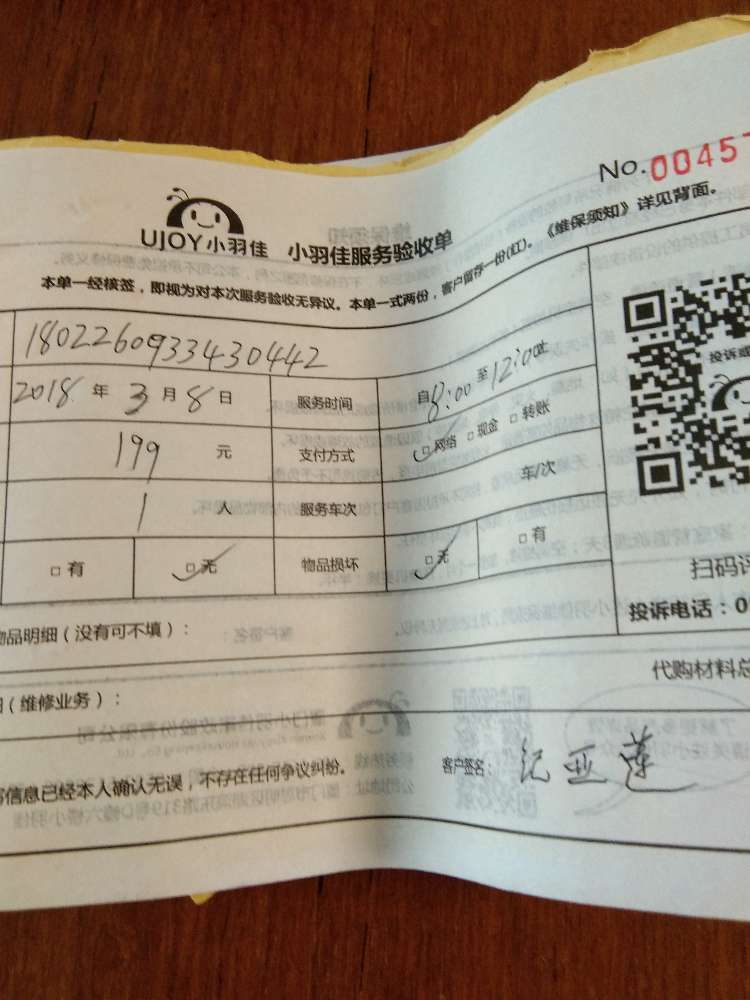 No.00457
UJOY小羽佳 小羽佳服务验收单
本单一经核签，即视为对本次服务验收无异议。本单一式两份，客户留存一份(红)。《维保须知》详见背面。
1802260933430442
2018 年 3 月 8 日 服务时间 自8:00 至 12:00止
199 元 支付方式 □网络 □现金 □转账
1 人 服务车次 车/次
□有 □无 物品损坏 □无 □有
投诉或
扫码评
投诉电话：0
物品明细（没有可不填）：
代购材料总
（维修业务）：
信息已经本人确认无误，不存在任何争议纠纷。 客户签名： 纪亚莲